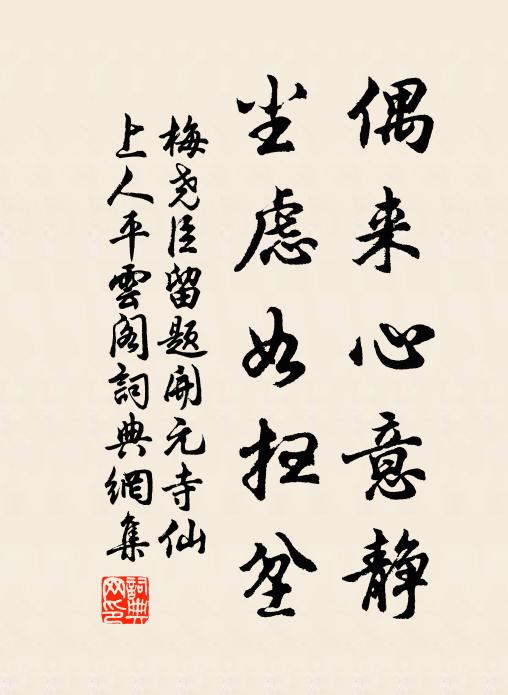 偶来心意静
尘虑如扫坌
梅尧臣留题開元寺仙
上人平雲阁詞典網集
詞典网印